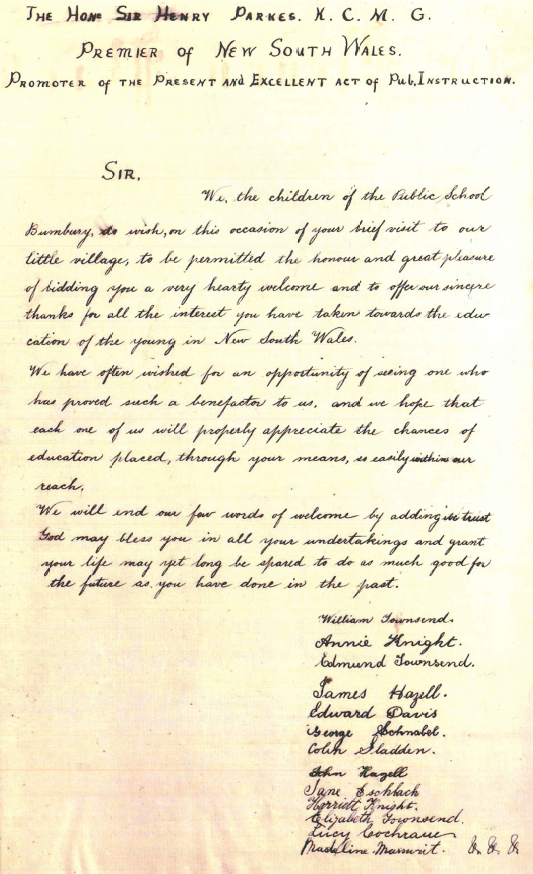 THE HONe SIR HENRY PARKES. K. C. M. G.
PREMIER OF NEW SOUTH WALES.
PROMOTER OF THE PRESENT AND EXCELLENT ACT OF PUB. INSTRUCTION.
SIR,
We, the children of the Public School
Bumbury, do wish, on this occasion of your brief visit to our
little village, to be permitted the honour and great pleasure
of bidding you a very hearty welcome and to offer our sincere
thanks for all the interest you have taken towards the edu
cation of the young in New South Wales.
We have often wished for an opportunity of seeing one who
has proved such a benefactor to us, and we hope that
each one of us will properly appreciate the chances of
education placed, through your means, so easily within our
reach.
We will end our few words of welcome by adding we trust
God may bless you in all your undertakings and grant
your life may yet long be spared to do as much good for
the future as you have done in the past.
William Townsend.
Annie Knight.
Edmund Townsend.
James Hazell.
Edward Davis
George Schnabel.
Colin Sladden.
John Hazell
Jane Eschbach
Harriett Knight.
Elizabeth Townsend.
Lucy Cochrane
Madeline &c &c &c